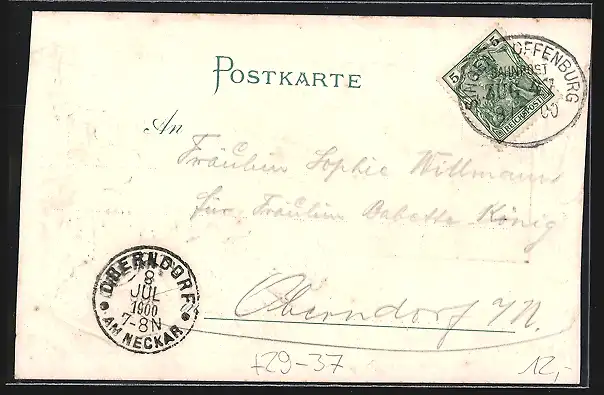 POSTKARTE
5 5
REICHSPOST
SINGEN OFFENBURG
BAHNPOST
ZUG
8
00
An
Fräulein Sophie Willmann
für Fräulein Babette König
Oberndorf a/N.
OBERNDORF
8
JUL
1900
7-8N
AM NECKAR
+29-37
12,-